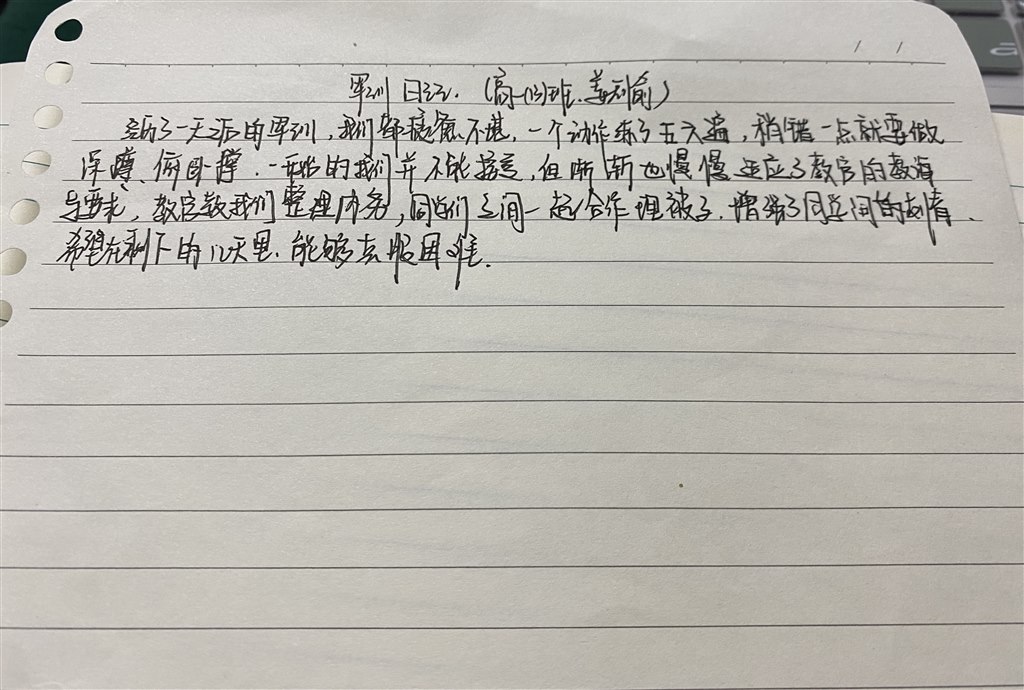 军训日记.(高一(13)班.姜利俞)
经历了一天之后的军训,我们都疲惫不堪,一个动作练了五六遍,稍错一点就要做
深蹲、俯卧撑.一开始的我们并不能接受,但渐渐也慢慢适应了教官的教诲
与要求,教官教我们整理内务,同学们之间一起合作理被子.增强了同学间的
希望在剩下的几天里.能够克服困难.